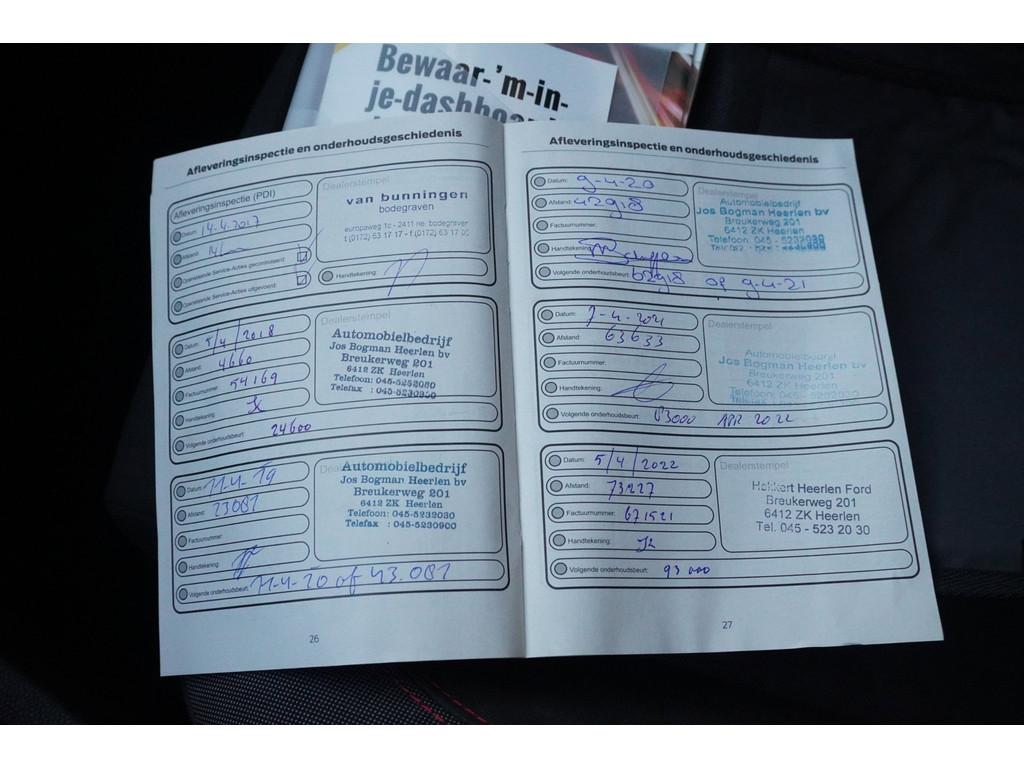 Bewaar-'m-in-
je-dashboard
Afleveringsinspectie en onderhoudsgeschiedenis
Afleveringsinspectie (PDI)
Datum: 14.4.2017
Afstand: 14/
Openstaande Service-Acties gecontroleerd:
Openstaande Service-Acties uitgevoerd:
Dealerstempel
van bunningen
bodegraven
europaweg 1c - 2411 ne bodegraven
t (0172) 63 17 17 - f (0172) 63 17 00
Handtekening:
Datum: 5/4/2018
Afstand: 4660
Factuurnummer: 54169
Handtekening:
Volgende onderhoudsbeurt: 24600
Dealerstempel
Automobielbedrijf
Jos Bogman Heerlen bv
Breukerweg 201
6412 ZK Heerlen
Telefoon: 045-5232030
Telefax : 045-5230900
Datum: 11-4-19
Afstand: 23081
Factuurnummer:
Handtekening:
Volgende onderhoudsbeurt: 11-4-20 of 43.081
Automobielbedrijf
Jos Bogman Heerlen bv
Breukerweg 201
6412 ZK Heerlen
Telefoon: 045-5232030
Telefax : 045-5230900
26
Afleveringsinspectie en onderhoudsgeschiedenis
Datum: 9-4-20
Afstand: 42918
Factuurnummer:
Handtekening:
Volgende onderhoudsbeurt: 62918 of 9-4-21
Dealerstempel
Automobielbedrijf
Jos Bogman Heerlen bv
Breukerweg 201
6412 ZK Heerlen
Telefoon: 045-5232030
Datum: 7-4-2021
Afstand: 63633
Factuurnummer:
Handtekening:
Volgende onderhoudsbeurt: 83000 APR 2022
Dealerstempel
Automobielbedrijf
Jos Bogman Heerlen bv
Breukerweg 201
6412 ZK Heerlen
Datum: 5/4/2022
Afstand: 73227
Factuurnummer: 671521
Handtekening:
Volgende onderhoudsbeurt: 93000
Dealerstempel
Hekkert Heerlen Ford
Breukerweg 201
6412 ZK Heerlen
Tel. 045 - 523 20 30
27